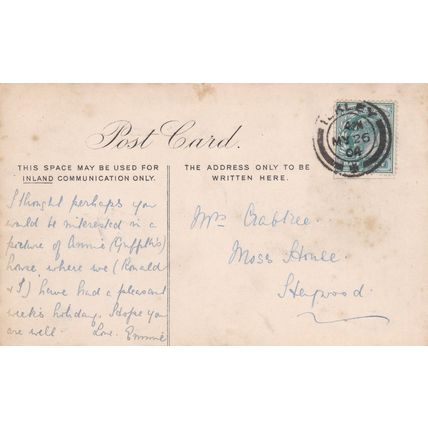 Post Card.
THIS SPACE MAY BE USED FOR
INLAND COMMUNICATION ONLY.
THE ADDRESS ONLY TO BE
WRITTEN HERE.
ILKLEY
AM
MY 26
04
I thought perhaps you
would be interested in a
picture of Annie (Griffith's)
house, where we (Ronald
& I) have had a pleasant
week's holiday. Hope you
are well. Love. Emmie
Mrs Crabtree.
Moss House.
Heywood.